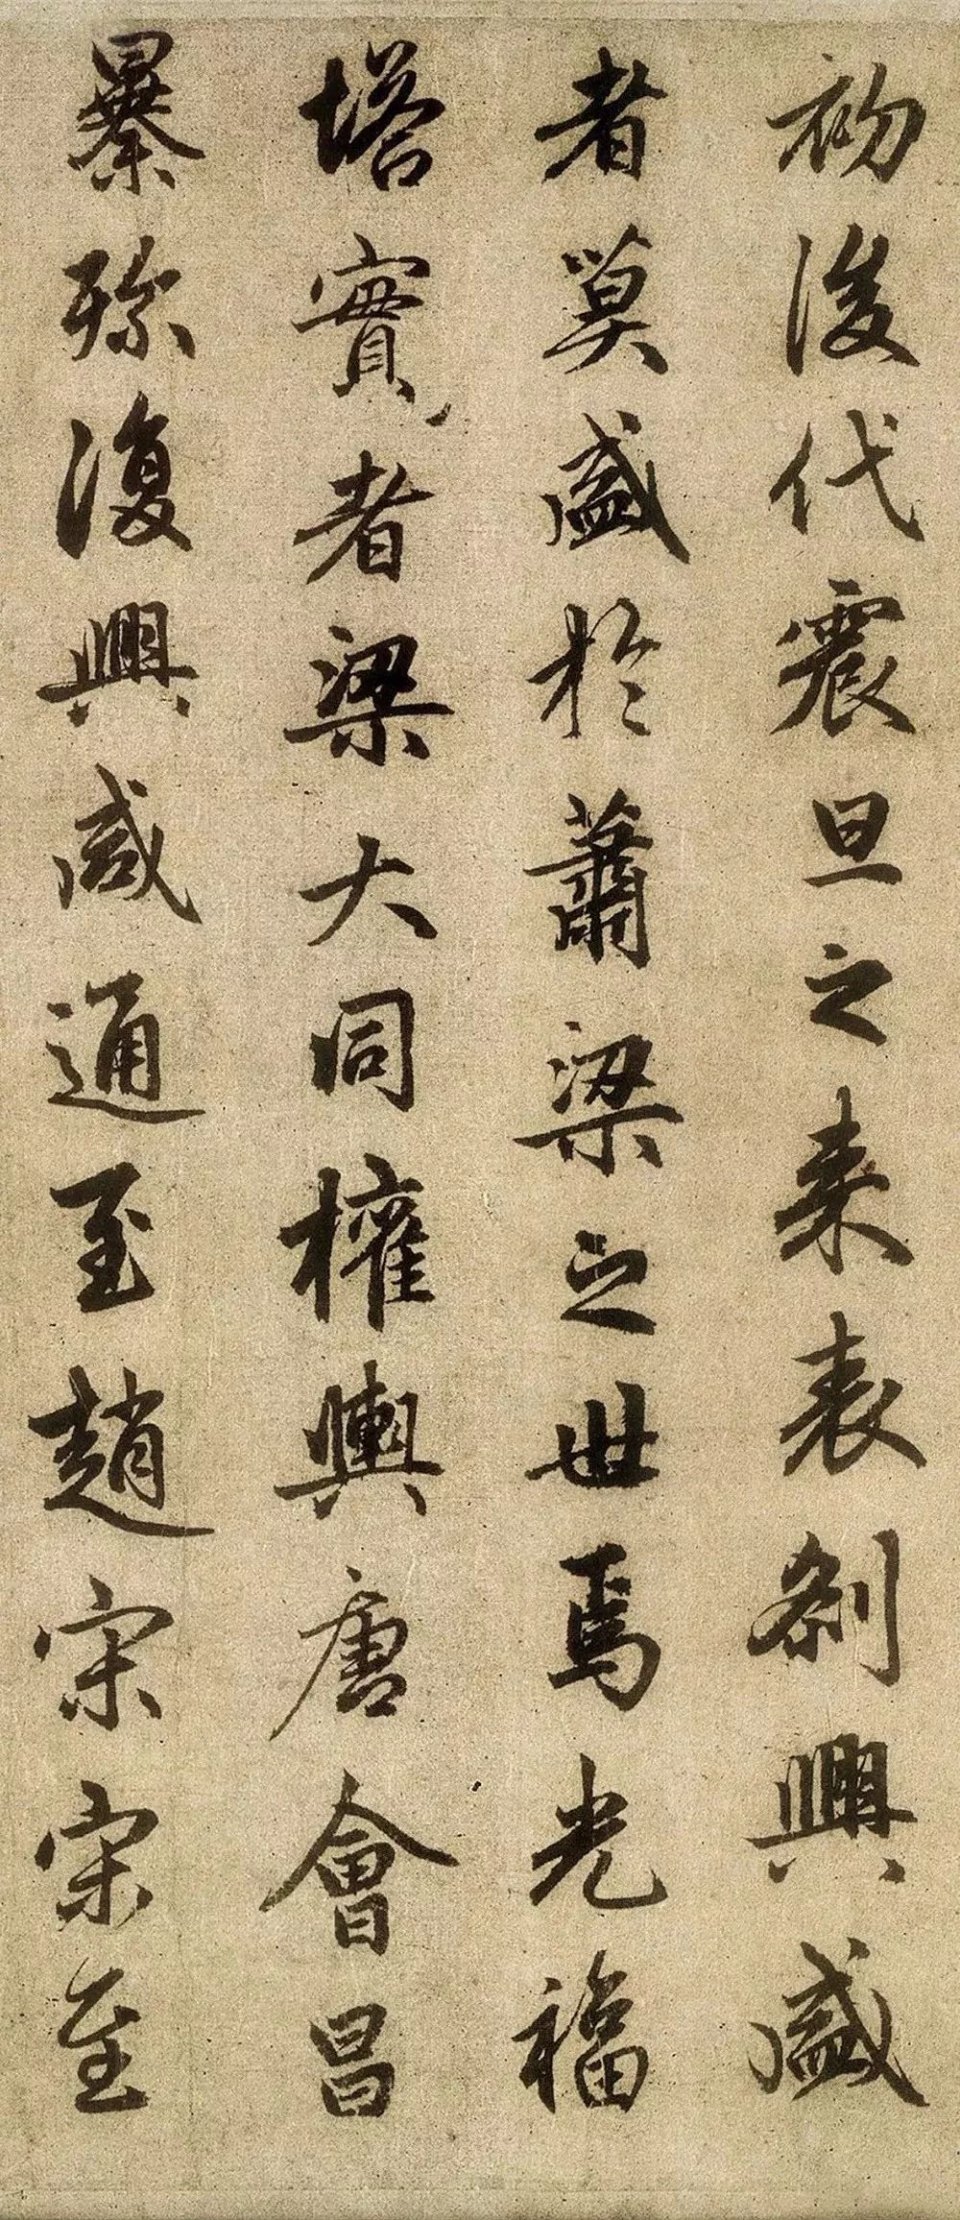 初後代震旦之来表刹興盛
者莫盛於蕭梁之世焉光福
塔實者梁大同權輿唐會昌
暴殄復興咸通至趙宋宋至